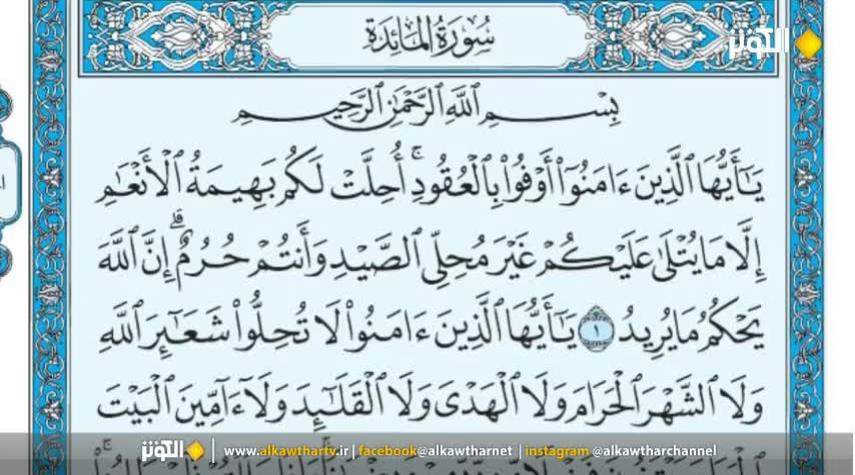 سُورَةُ المَائِدَةِ
الكوثر
بِسْمِ ٱللَّهِ ٱلرَّحْمَٰنِ ٱلرَّحِيمِ
يَٰٓأَيُّهَا ٱلَّذِينَ ءَامَنُوٓا۟ أَوْفُوا۟ بِٱلْعُقُودِ ۚ أُحِلَّتْ لَكُم بَهِيمَةُ ٱلْأَنْعَٰمِ
إِلَّا مَا يُتْلَىٰ عَلَيْكُمْ غَيْرَ مُحِلِّى ٱلصَّيْدِ وَأَنتُمْ حُرُمٌ ۗ إِنَّ ٱللَّهَ
يَحْكُمُ مَا يُرِيدُ ١ يَٰٓأَيُّهَا ٱلَّذِينَ ءَامَنُوا۟ لَا تُحِلُّوا۟ شَعَٰٓئِرَ ٱللَّهِ
وَلَا ٱلشَّهْرَ ٱلْحَرَامَ وَلَا ٱلْهَدْىَ وَلَا ٱلْقَلَٰٓئِدَ وَلَآ ءَآمِّينَ ٱلْبَيْتَ
الكوثر www.alkawthartv.ir | facebook@alkawtharnet | instagram @alkawtharchannel